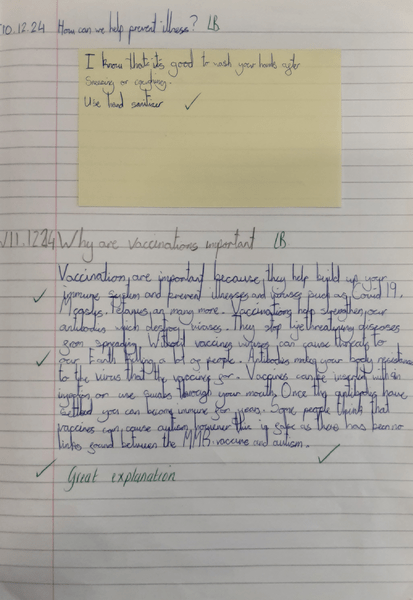 10.12.24 How can we help prevent illness? LB
I know that its good to wash your hands after
sneezing or coughing.
Use hand sanitizer
11.12.24 Why are vaccinations important LB
Vaccination, are important because they help build up your
immune system and prevent illnesses and viruses such as Covid 19,
Measles, Tetanus, an many more. Vaccinations help strengthen your
antibodies which destroy viruses. They stop lifethreatening diseases
from spreading. Without vaccines viruses can cause threats to
our Earth killing a lot of people. Antibodies make your body
to the virus that the vaccine for. Vaccines can be with an
injection or use swabs through your mouth. Once the antibodies have
settled you can become immune for years. Some people think that
vaccines can cause autism however this is safe as there has been no
links found between the MMR vaccine and autism.
Great explanation